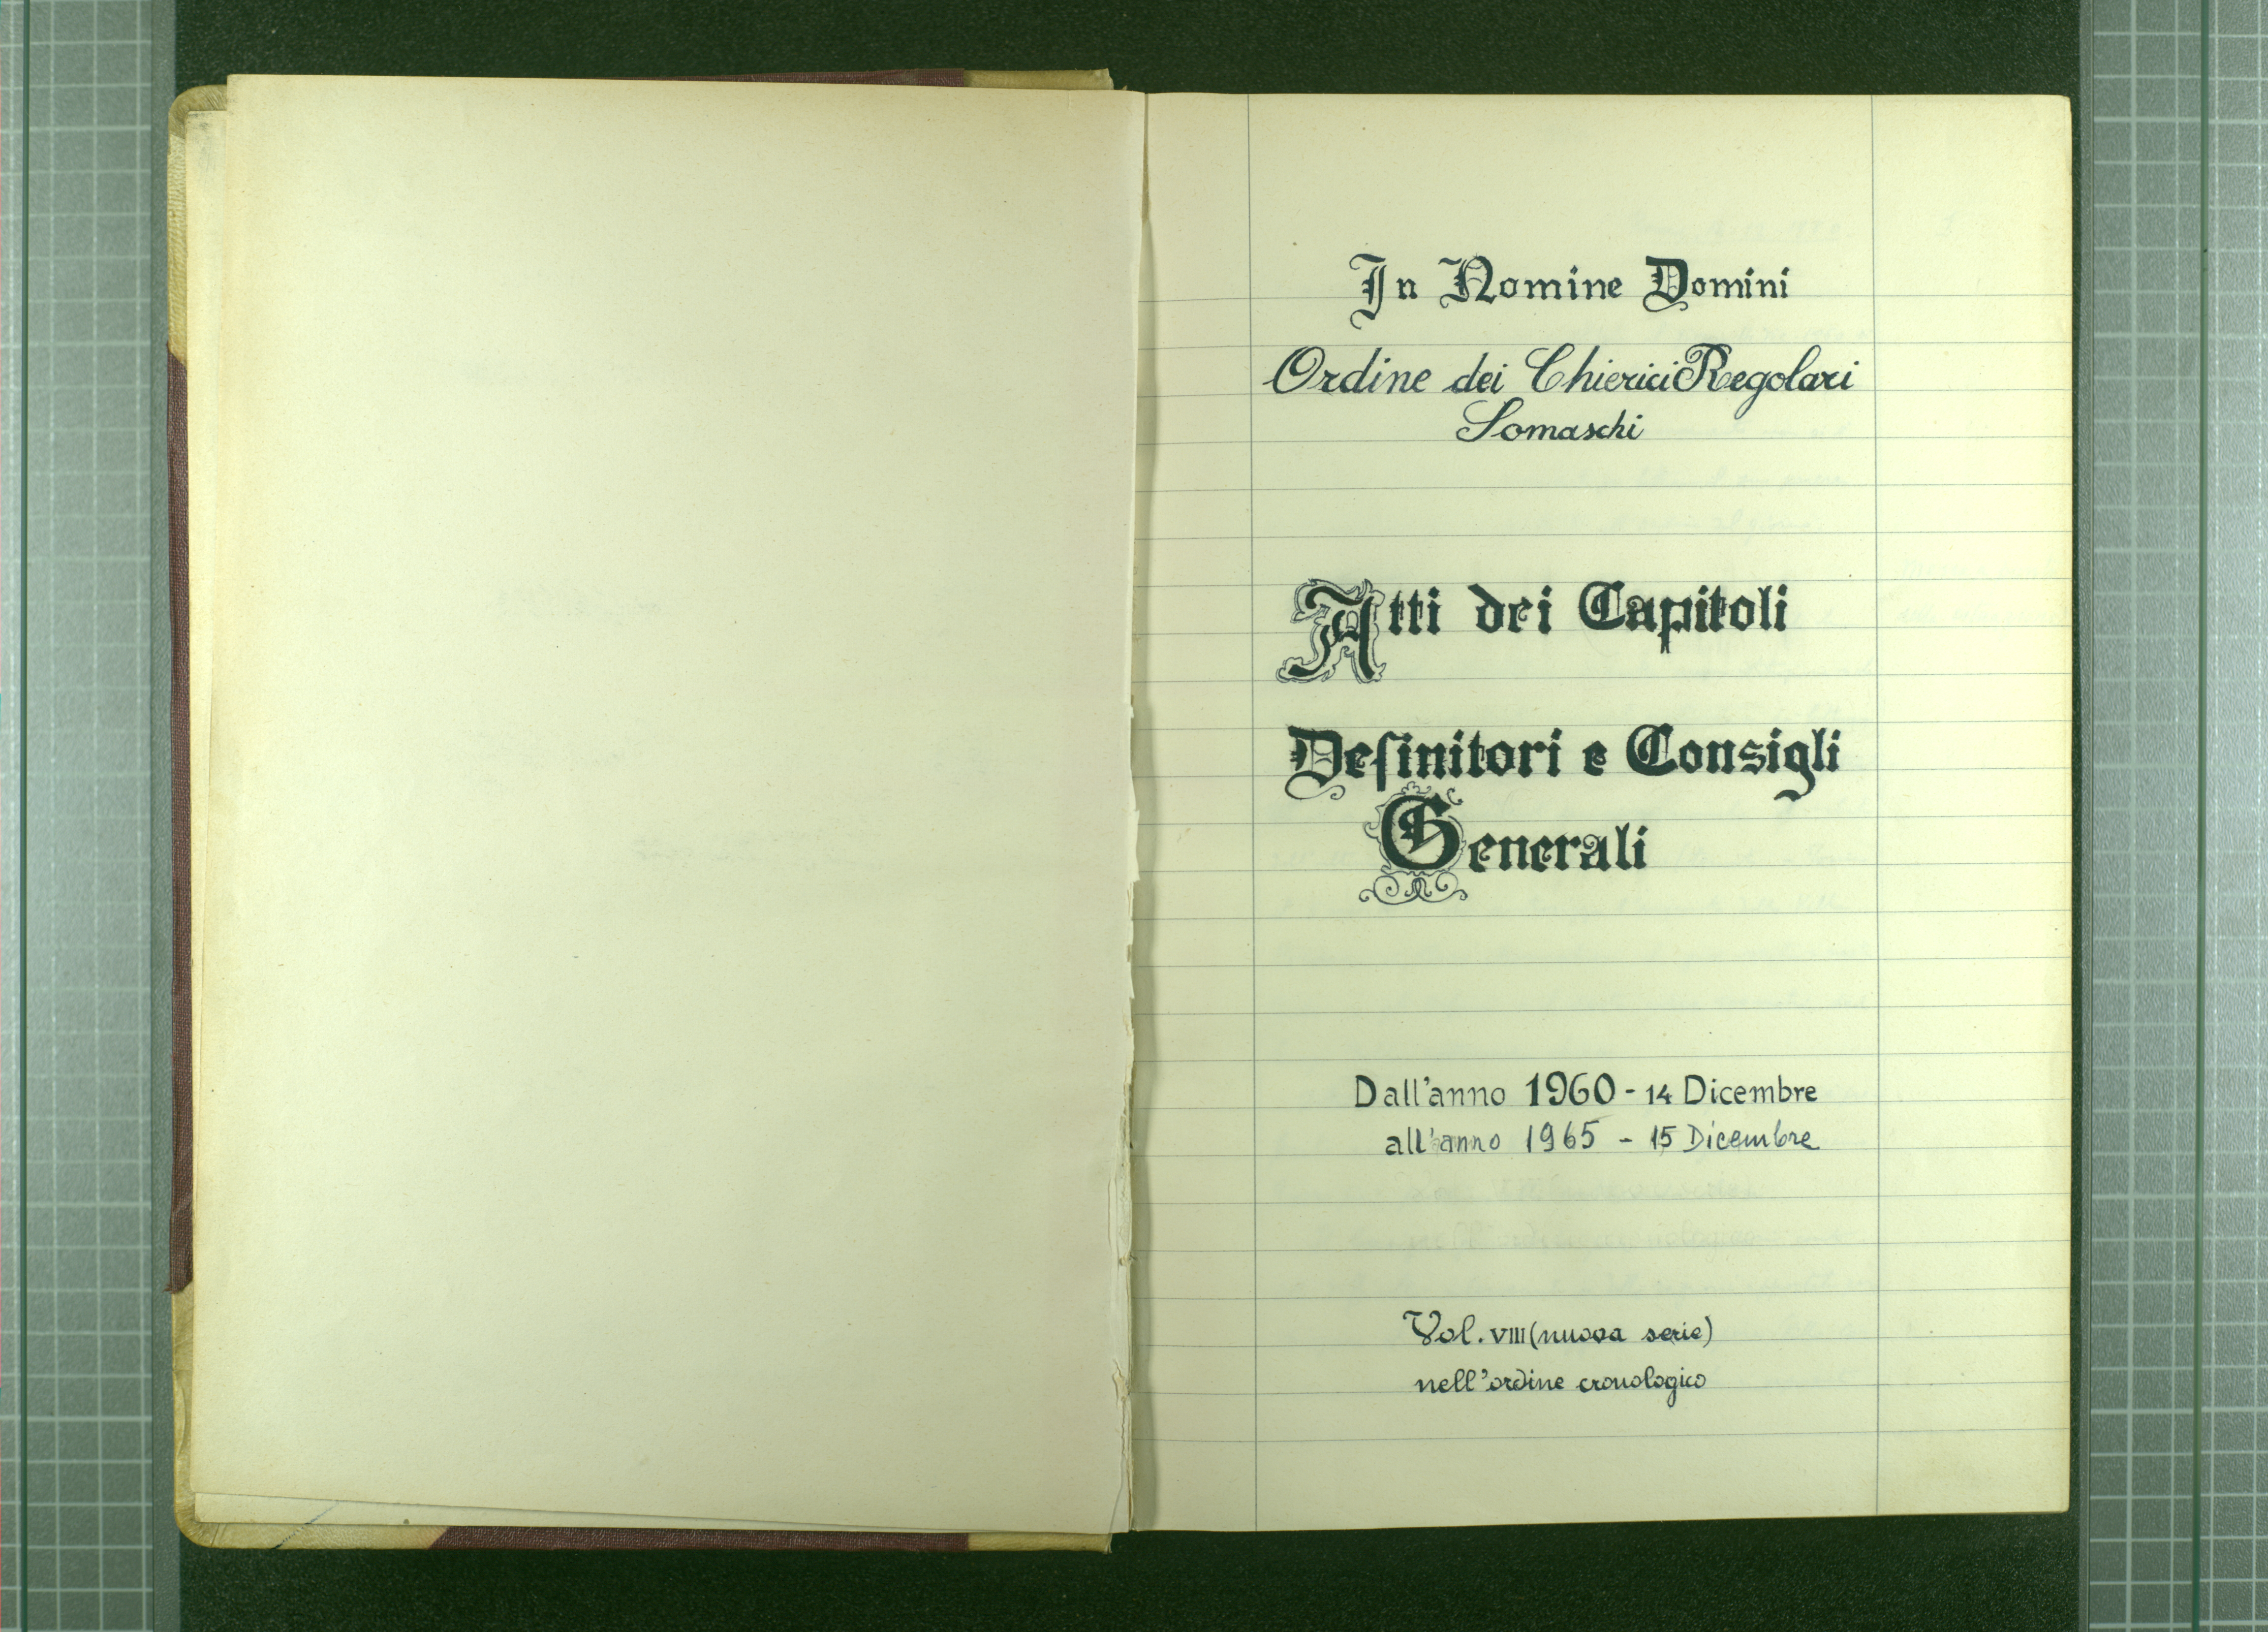 In Nomine Domini
Ordine dei Chierici Regolari
Somaschi
Atti dei Capitoli
Definitori e Consigli
Generali
Dall'anno 1960 - 14 Dicembre
all'anno 1965 - 15 Dicembre
Vol. VIII (nuova serie)
nell'ordine cronologico